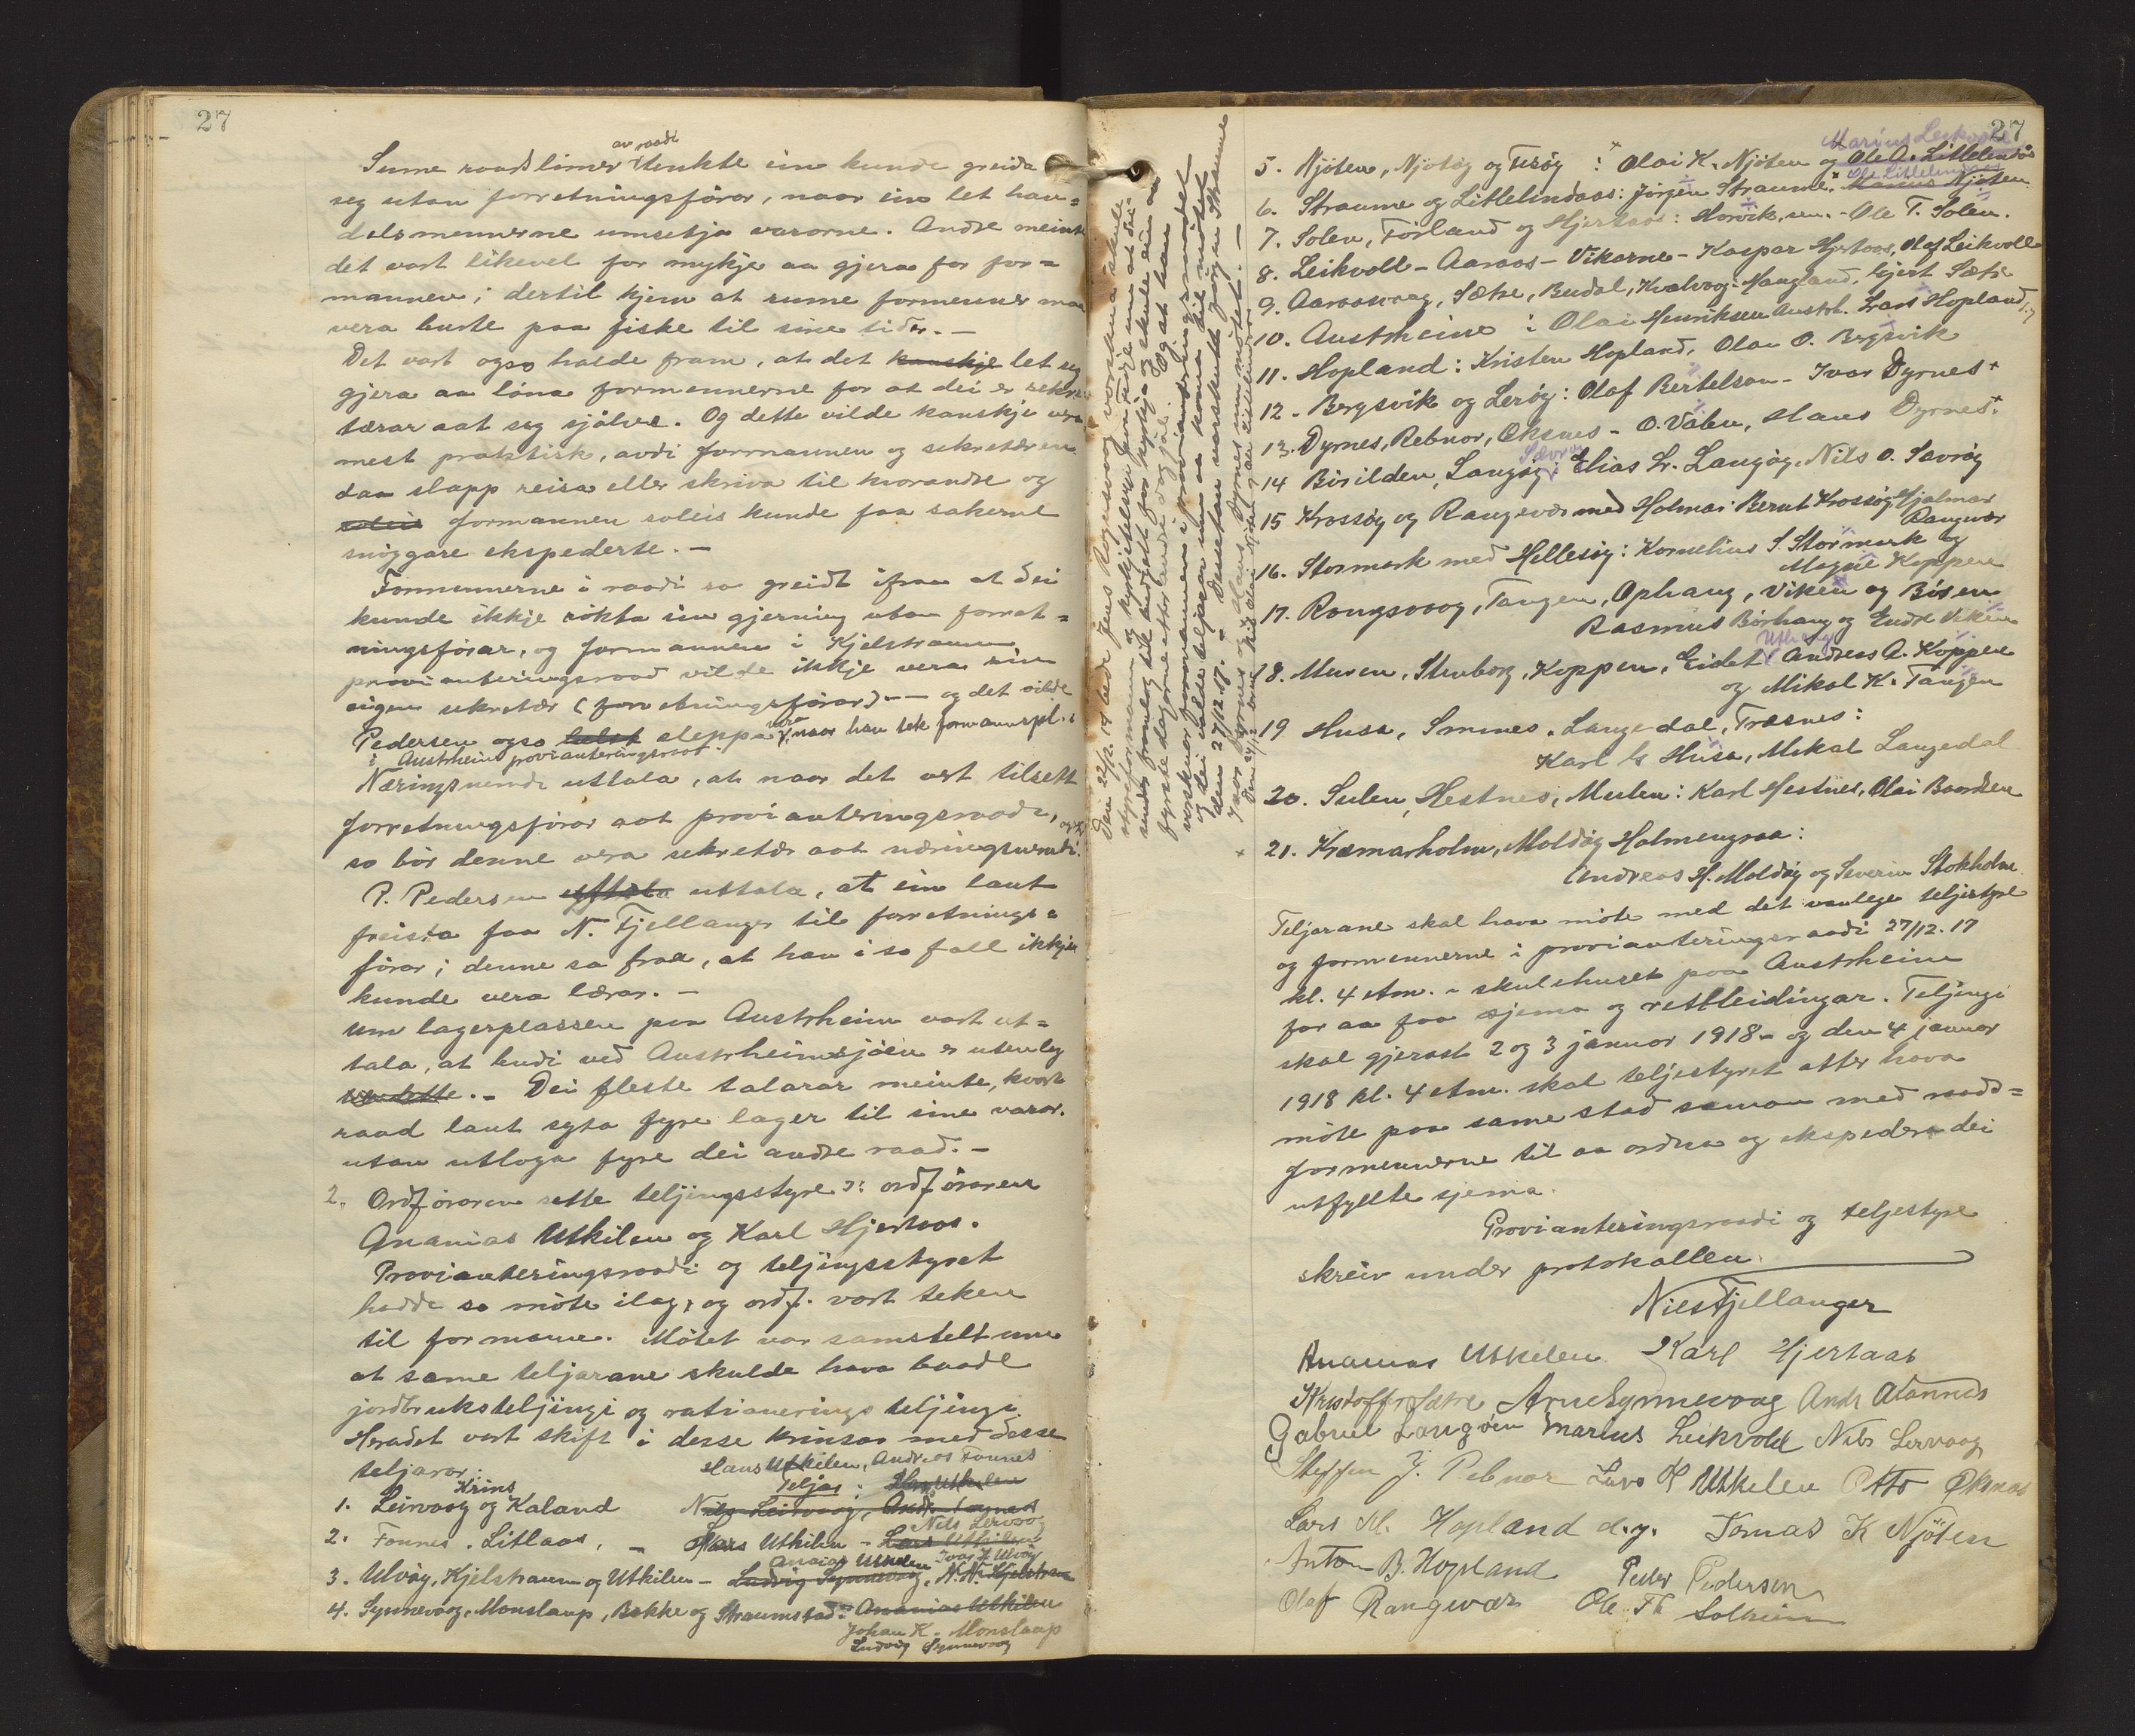 27
av raadi
Sume raadslimer tenkte ein kunde greida
seg utan forretningsförar, naar ein let han=
delsmennerne umsetja vararne. Andre meinte
det vart likevel for mykje aa gjera for for=
mannen; dertil kjem at sume formenner maa
vera burte paa fiske til sine tider. —
Det vart ogso halde fram, at det kanskje let seg
gjera aa löna formennerne for at dei er sekre
tærar aat seg sjölve. Og dette vilde kanskje vera
mest praktisk, avdi formannen og sekretæren
daa slapp reisa eller skriva til kvarandre og
soleis formannen soleis kunde faa sakerne
snöggare ekspederte. —
Formennerne i raadi sa greidt ifraa at dei
kunde ikkje rökta sin gjerning utan forret=
ningsförar, og formannen i Kjelstraum
provianteringsraad vilde ikkje vera sin
eigen sekretær (forretningsförar) — og det vilde
Pedersen ogso helst sleppa vera, naar han tek formannspl. i
i Austrheim provianteringsraad.
Næringsnemndi uttala, at naar det vert tilsett
forretningsförar aat provianteringsraadi,
so bör denne vera sekretær aat næringsnemndi.
P. Pedersen uttala, at ein laut
freista faa N. Fjellanger til forretnings=
förar; denne sa fraa, at han i so fall ikkje
kunde vera lærar. —
Um lagerplassen paa Austrheim vart ut=
tala, at budi ved Austrheimsjöen er utenleg
. — Dei fleste talarar meinte, kvart
raad laut syta fyre lager til sine varor.
utan utlogn fyre dei andre raad. —
2. Ordföraren sette teljingsstyre ɔ: ordföraren
Ananias Utkilen og Karl Hjertaas.
Provianteringsraadi og teljingsstyret
hadde so möte ilag, og ordf. vart teken
til formann. Mötet var samstelt um
at same teljarane skulde hava baade
jordbruksteljingi og rationerings teljingi
Heradet vart skift i desse krinsar med desse
teljarar: Hans Utkilen, Andreas Fonnes
Krins Teljar: Hans Utkilen
1. Leirvaag og Kaland Nils Leirvaag, Andr. Fonnes
Nils Lervaag
2. Fonnes, Litlaas, - Hans Utkilen - Lars Utkilen
Ananias Utkilen Ivar J. Ulvöy
3. Ulvöy, Kjelstraum og Utkilen - Ludvig Synnevaag, N. N. Kjelstraum
4. Synnevaag, Monslaup, Bakke og Straumstad: - Ananias Utkilen
Johan K. Monslaup
Ludvig Synnevaag
Den 22/12. 17 bad Jens Rognsvaag
fyrste dagjerne etter andre dag jol. Og at han
varskuer formannen i provianteringsraadet
og dei valde teljarar um aa koma til mötet
den 27/12. 17. - Dessutan varskudt Jörgen Straume
Ivar Dyrnes og Hans Dyrnes um mötet. —
27
Marius Leikvoll
5. Njöten, Njötöy og Fesöy: Olai K. Njöten og Ole A. Litlelindås
Ole Litlelindaas
6. Straume og Litlelindaas: Jörgen Straume, Marius Njöten
7. Solen, Förland og Hjertaas: Horvik, sen. - Ole T. Solen.
8. Leikvoll - Aaraas - Vikarne - Kaspar Hjertaas, Olaf Leikvoll
9. Aaraasvaag, Sætre, Budal, Kvalvaag: Haugland, Gjert Sætre
10. Austrheim: Olai Henriksen Austrh. Lars Hopland
11. Hopland: Kristen Hopland, Olai O. Bergsvik
12. Bergsvik og Leröy: Olaf Bertelsen - Ivar Dyrnes
13. Dyrnes, Rebnor, Öksnes - O. Válen, Hans Dyrnes
Sævröy
14 Börilden, Langöy: Elias Sr. Langöy. Nils O. Sævröy
15 Krossöy og Rangevær med Holmar: Bernt Krossöy, Hjalmar
Rangevær
16. Stormark med Hellesöy: Kornelius S. Stormark og
Magne Koppen
17. Rongevaag, Tangen, Ophaug, Viken og Bösen
Rasmus Börhaug og Endre Viken
Uthaug
18. Muren, Stenborg, Koppen, Eidet: Andreas A. Koppen
og Mikal K. Tangen
19 Husa, Smines, Langedal, Træsnes:
Karl G Husa, Mikal Langedal
20. Sulen, Hestnes, Mulen: Karl Hestnes, Olai Baardsen
21. Kræmarholm, Moldöy Holmengraa:
Andreas H. Moldöy og Severin Stokholm
Teljarane skal hava möte med det vanlege teljestyre
og formennerne i provianteringsraadi 27/12. 17
kl. 4 etm. i skulehuset paa Austrheim
for aa faa sjema og rettleidingar. Teljingi
skal gjerast 2 og 3 januar 1918 - og den 4 januar
1918 kl. 4 etm. skal teljestyret atter hava
möte paa same stad saman med raads=
formennerne til aa ordna og ekspedera dei
utfyllte sjema.
Provianteringsraadi og teljestyre
skreiv under protokollen.
Nils Fjellanger
Ananias Utkilen Karl Hjertaas
Kristoffer Sætre Arne Synnevaag Andr Adannes
Gabriel Langöen Marius Leikvoll Nils Lervaag
Steffen J. Rebnor Lars H Utkilen Otto Øksnes
Lars M. Hopland d.y. Tomas K Njöten
Anton B. Hopland Peder Pedersen
Olaf Rangevær Ole Th Solheim